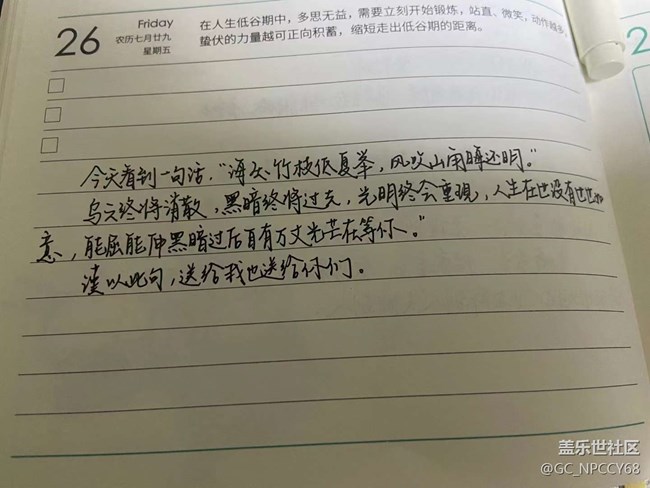 26
Friday
农历七月廿九
星期五
在人生低谷期中，多思无益，需要立刻开始锻炼，站直、微笑，动作越多，
蛰伏的力量越可正向积蓄，缩短走出低谷期的距离。
2
今天看到一句话，“海 竹枝低复举，风吹山角晦还明。”
乌云终将消散，黑暗终将过去，光明终会重现，人生在世没有
意，能屈能伸黑暗过后自有万丈光芒在等你。”
谨以此句，送给我也送给你们。
盖乐世社区
@GC_NPCCY68